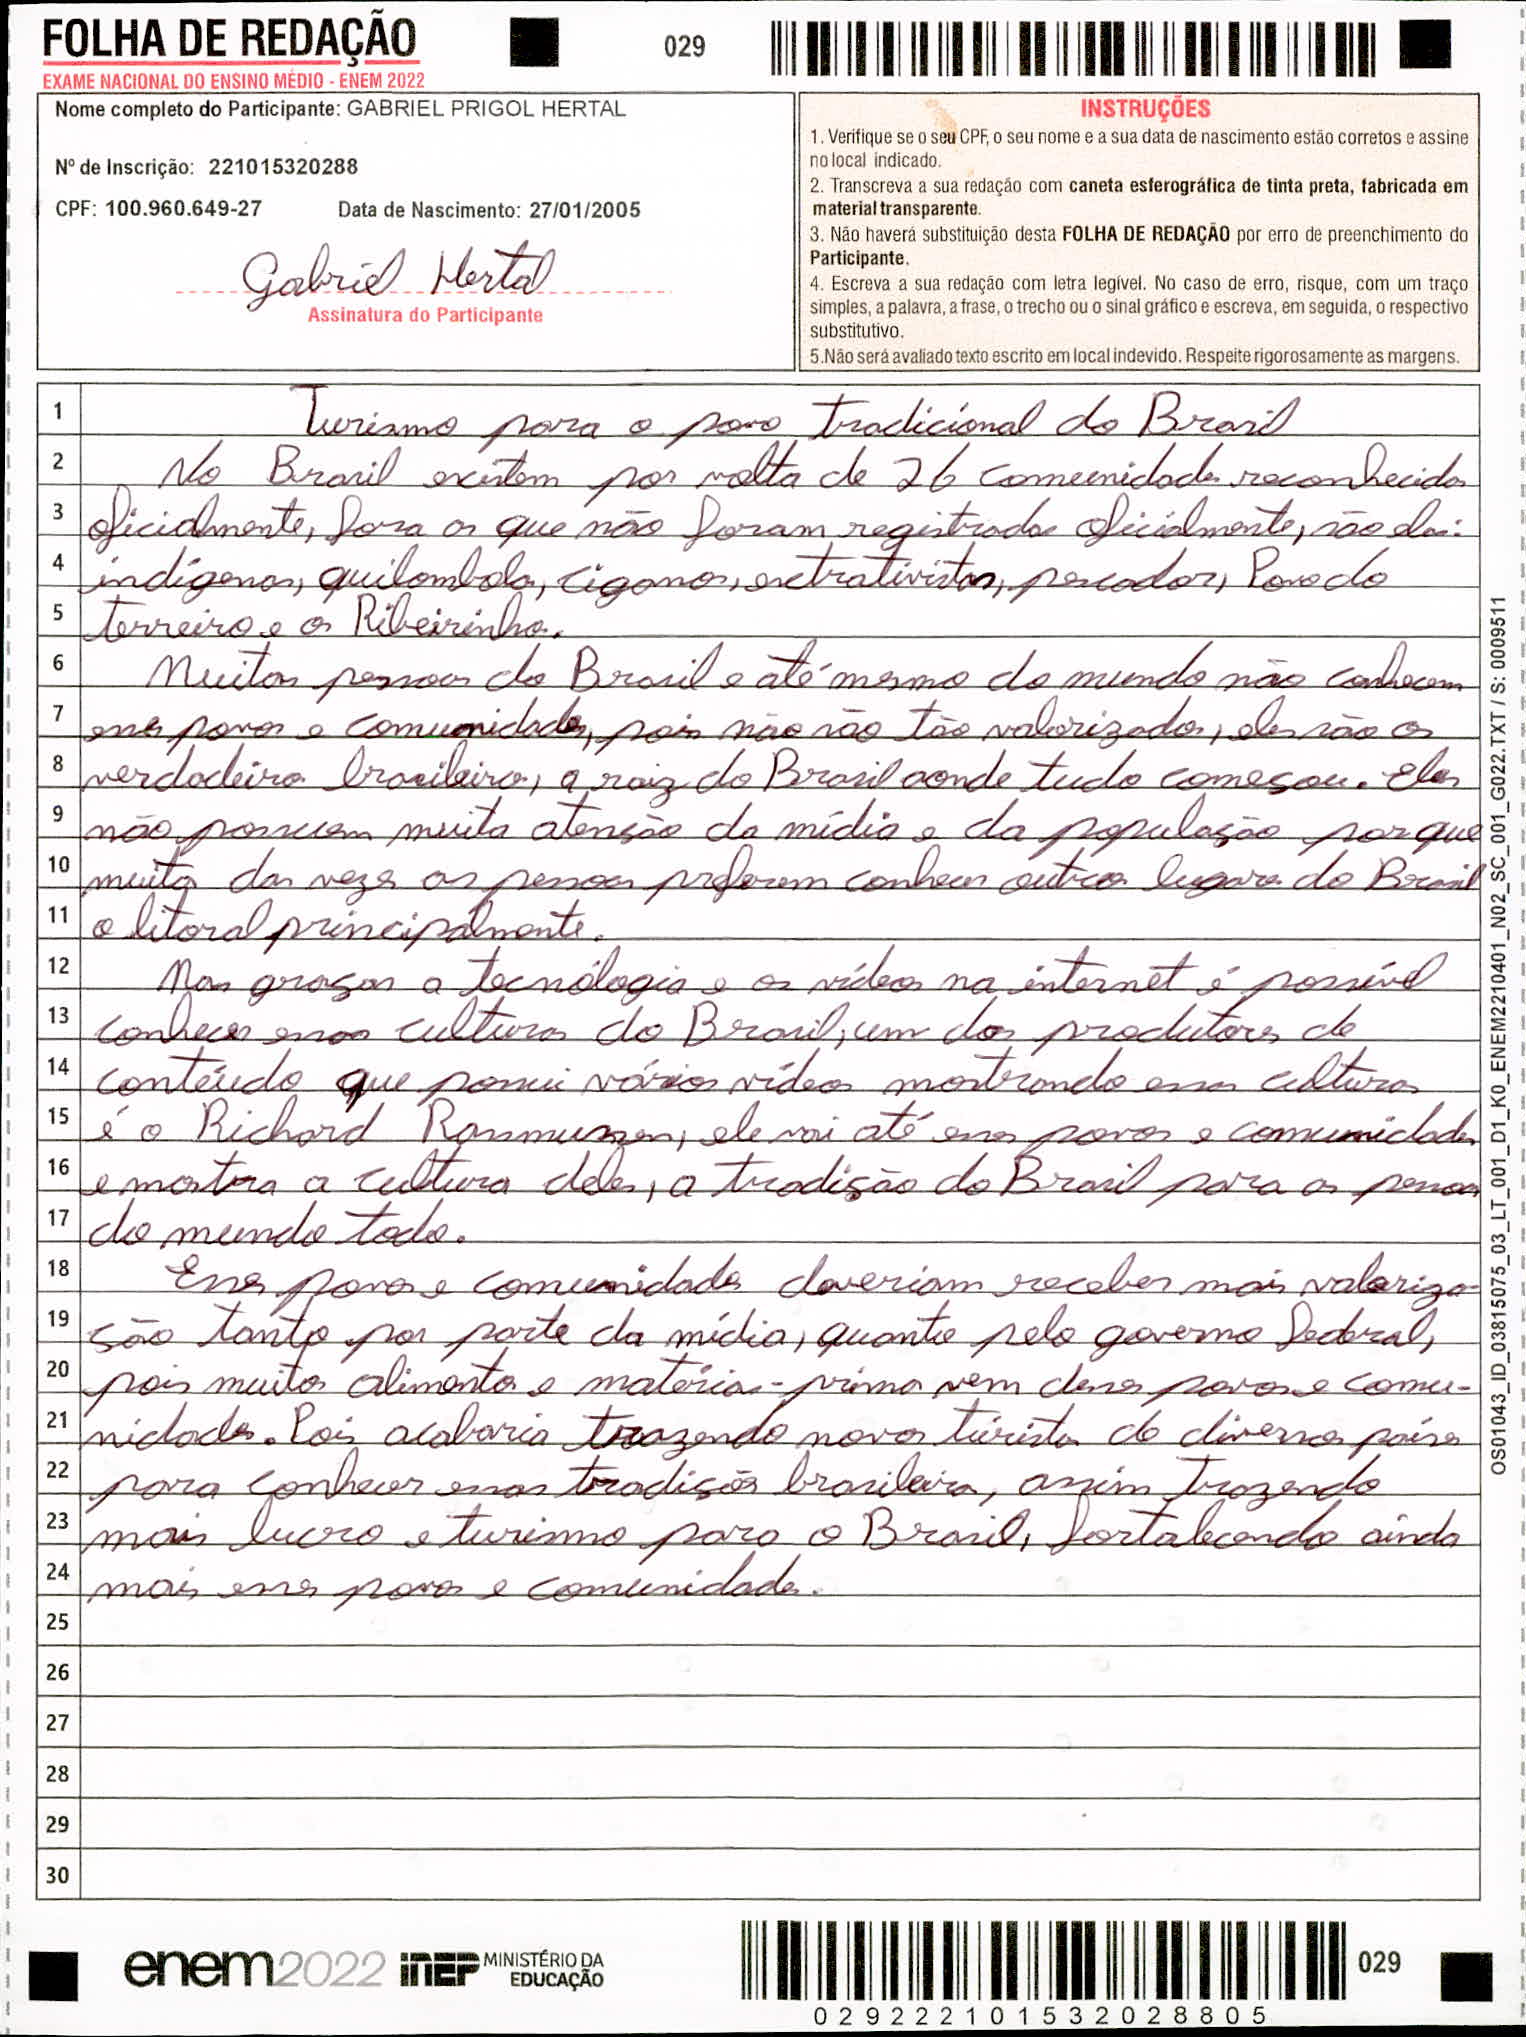 FOLHA DE REDAÇÃO
029
EXAME NACIONAL DO ENSINO MÉDIO - ENEM 2022
Nome completo do Participante: GABRIEL PRIGOL HERTAL
Nº de Inscrição: 221015320288
CPF: 100.960.649-27 Data de Nascimento: 27/01/2005
Gabriel Hertal
Assinatura do Participante
INSTRUÇÕES
1. Verifique se o seu CPF, o seu nome e a sua data de nascimento estão corretos e assine
no local indicado.
2. Transcreva a sua redação com caneta esferográfica de tinta preta, fabricada em
material transparente.
3. Não haverá substituição desta FOLHA DE REDAÇÃO por erro de preenchimento do
Participante.
4. Escreva a sua redação com letra legível. No caso de erro, risque, com um traço
simples, a palavra, a frase, o trecho ou o sinal gráfico e escreva, em seguida, o respectivo
substitutivo.
5.Não será avaliado texto escrito em local indevido. Respeite rigorosamente as margens.
1 Turismo para o povo tradicional do Brasil
2 No Brasil existem por volta de 26 comunidades reconhecidas
3 oficialmente, fora os que não foram registrados oficialmente, são elas:
4 indígenas, quilombolas, ciganos, extrativistas, pescadores, Povo do
5 terreiro e os Ribeirinhos.
6 Muitas pessoas do Brasil e até mesmo do mundo não conhecem
7 esses povos e comunidades, pois não são tão valorizados, eles são os
8 verdadeiros brasileiros, a raiz do Brasil aonde tudo começou. Eles
9 não possuem muita atenção da mídia e da população porque
10 muita das vezes as pessoas preferem conhecer outros lugares do Brasil
11 o litoral principalmente.
12 Mas graças a tecnólogia e os vídeos na internet é possível
13 conhecer essas culturas do Brasil, um dos produtores de
14 contéudo que possui vários vídeos mostrando essas culturas
15 é o Richard Rasmussen, ele vai até esses povos e comunidades
16 e mostra a cultura deles, a tradição do Brasil para as pessoas
17 do mundo todo.
18 Esses povos e comunidades deveriam receber mais valoriza-
19 ção tanto por parte da mídia, quanto pelo governo federal,
20 pois muitos alimentos e matérias-primas vem desses povos e comu-
21 nidades. Pois acabaria trazendo novos túristas de diversos países
22 para conhecer essas tradições brasileiras, assim trazendo
23 mais lucro e turismo para o Brasil, fortalecendo ainda
24 mais esses povos e comunidades.
25
26
27
28
29
30
OS01043_ID_03815075_03_LT_001_D1_K0_ENEM2210401_N02_SC_001_G022.TXT / S: 0009511
enem2022 inep MINISTÉRIO DA
EDUCAÇÃO
029
029222101532028805